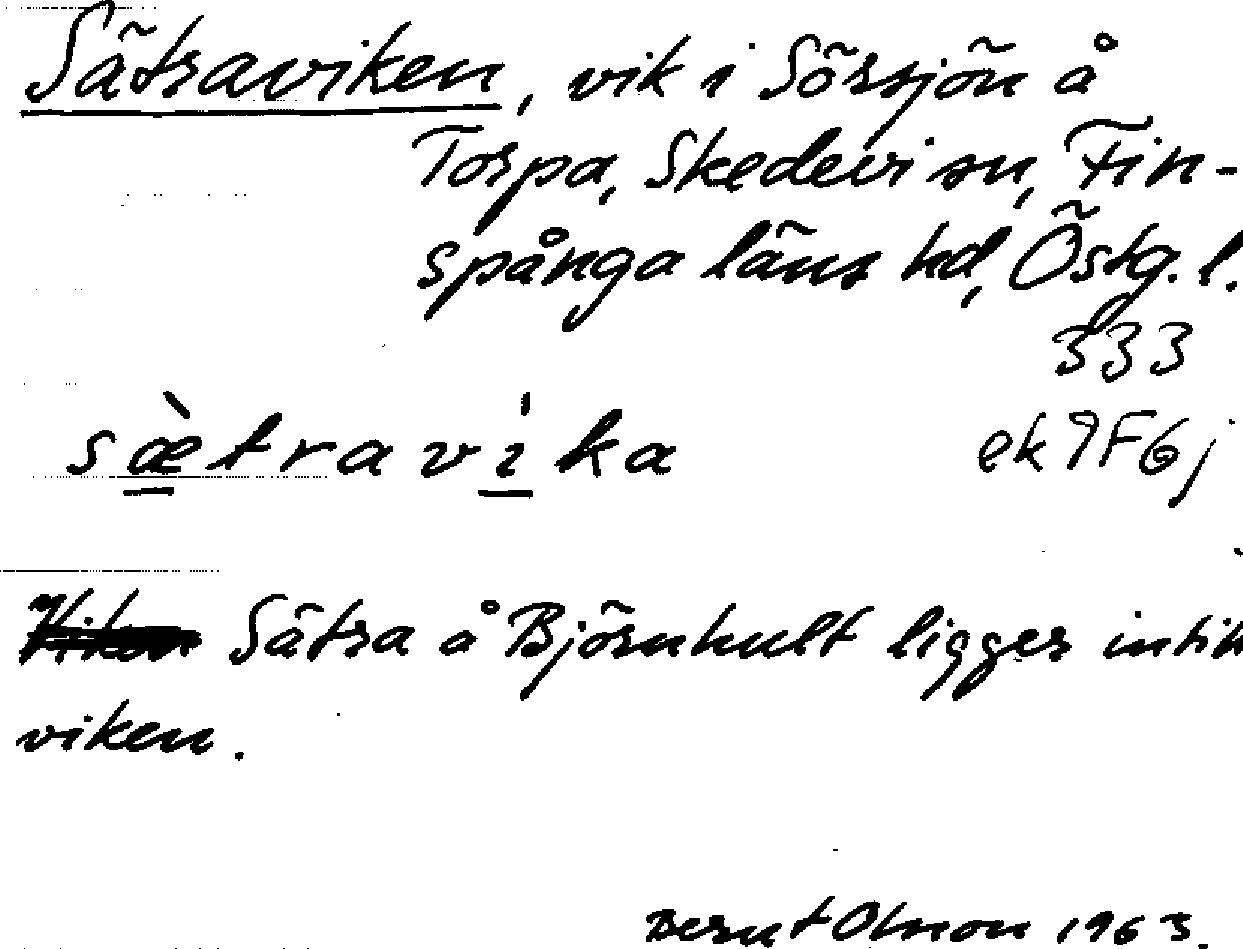 Sätraviken, vik i Sörsjön å
Torpa, Skedevi sn, Fin-
spånga läns hd, Östg. l.
333
sæ̀travi̍ka ek 9F6j
Sätra å Björnhult ligger intill
viken.
Bernt Olsson 1963.